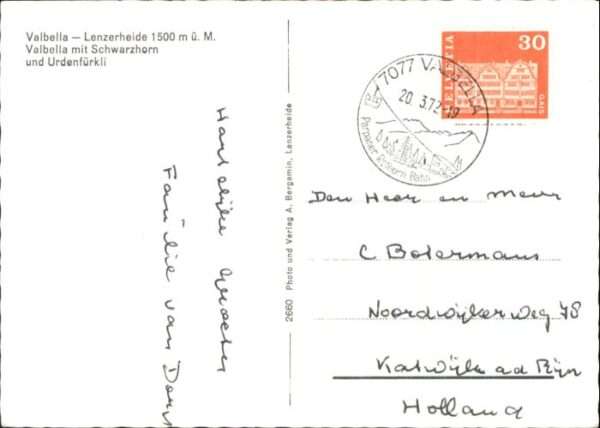 Valbella — Lenzerheide 1500 m ü. M.
Valbella mit Schwarzhorn
und Urdenfürkli
Hartelijke groeten
Familie van Dorst
2660 Photo und Verlag A. Bergamin, Lenzerheide
7077 VALBELLA
20. 3.72-19
Parpaner Rothorn Bahn
HELVETIA
30
GAIS
Den Heer en Mevr
C Botermans
Noordwijkerweg 78
Katwijk ad Rijn
Holland